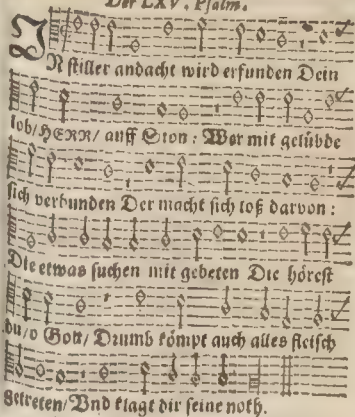 Der LXV. Psalm.
IN stiller andacht wird erfunden Dein
lob/ HERR/ auff Sion: Wer mit gelübde
sich verbunden Der macht sich loß darvon:
Die etwas suchen mit gebeten Die hörest
du/ o Gott/ Drumb kömpt auch alles fleisch
getreten/ Vnd klagt dir seine noth.